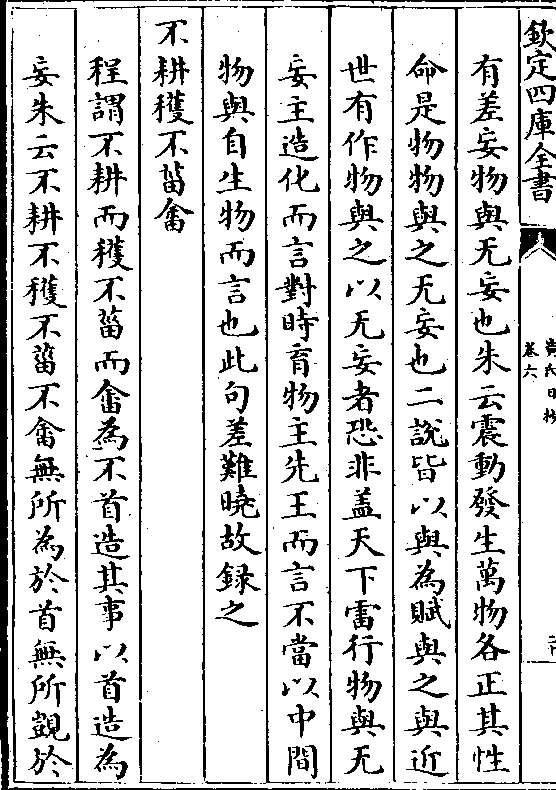 欽定四庫全書
黄氏日抄
卷六
有差妄物與无妄也朱云震動發生萬物各正其性
命是物物與之无妄也二說皆以與為賦與之與近
世有作物與之以无妄者恐非盖天下雷行物與无
妄主造化而言對時育物主先王而言不當以中間
物與自生物而言也此句差難曉故録之
不耕穫不菑畬
程謂不耕而穫不菑而畬為不首造其事以首造為
妄朱云不耕不穫不菑不畬無所為於首無所覬於